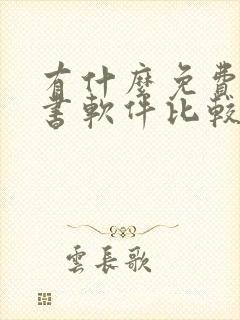 有什麼免費
書軟件比較
雲長歌